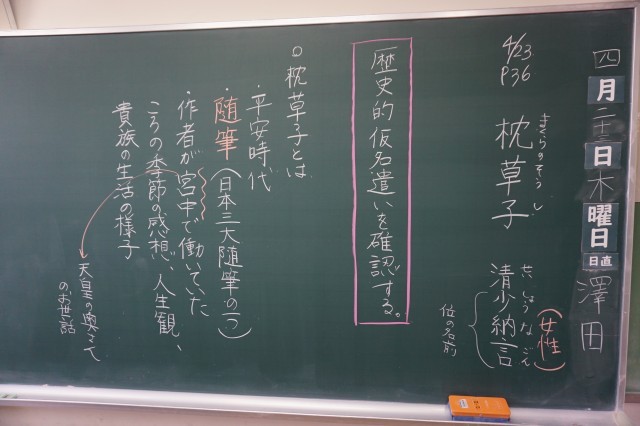 四月二十三日木曜日
日直
澤田
4/23
P36
まくらのそうし
枕草子
せいしょうなごん
清少納言
(女性)
位の名前
歴史的仮名遣いを確認する。
○枕草子とは
・平安時代
・随筆(日本三大随筆の一つ)
・作者が宮中で働いていた
ころの季節の感想、人生観、
貴族の生活の様子
天皇の奥さん
のお世話